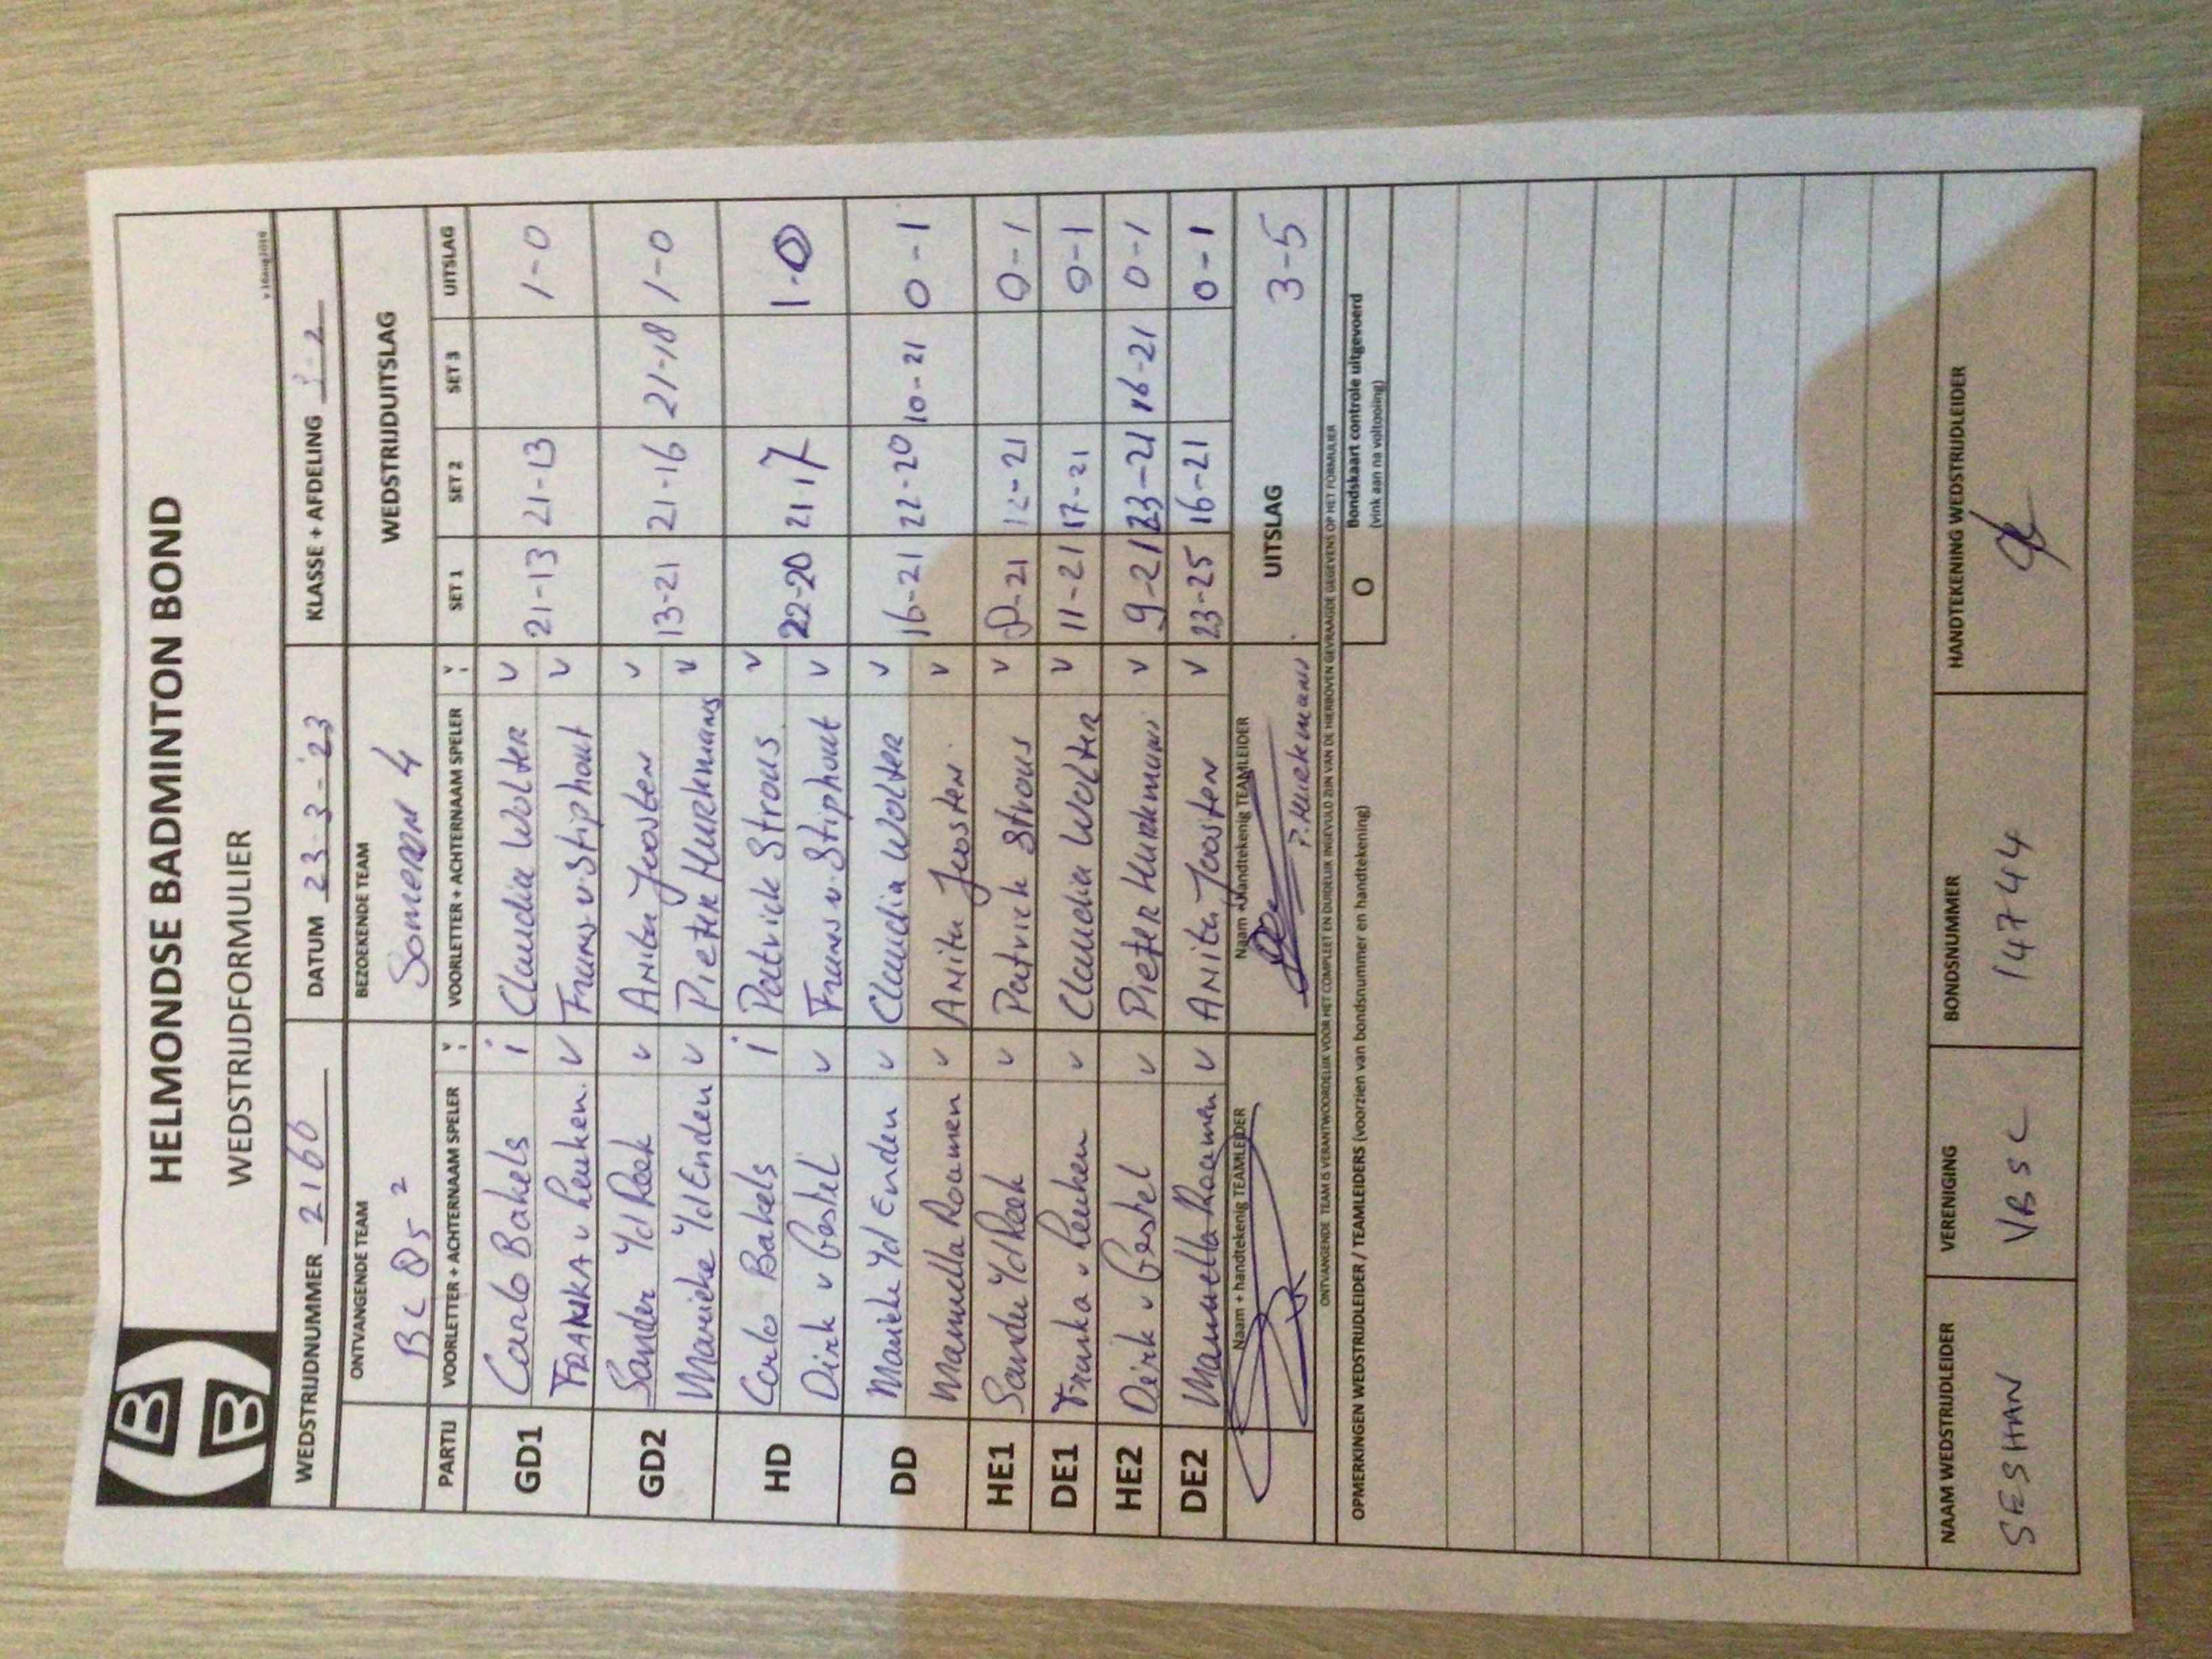 HELMONDSE BADMINTON BOND
WEDSTRIJDFORMULIER
WEDSTRIJDNUMMER 2160 DATUM 23-3-'23 KLASSE + AFDELING 3-2
ONTVANGENDE TEAM BEZOEKENDE TEAM WEDSTRIJDUITSLAG
BC 85 2 Someren 4
PARTIJ VOORLETTER + ACHTERNAAM SPELER VOORLETTER + ACHTERNAAM SPELER SET 1 SET 2 SET 3 UITSLAG
GD1 Carlo Bakels i Claudia Wolter v 21-13 21-13 1-0
Franka v Leuken v Frans v. Stiphout v
GD2 Sander vd Reek v Anita Joosten v 13-21 21-16 21-18 1-0
Marieke vd Enden v Pieter Hurkmans v
HD Carlo Bakels i Patrick Strous v 22-20 21 17 1-0
Dirk v Gestel v Frans v. Stiphout v
DD Marieke vd Enden v Claudia Wolter v 16-21 22-20 10-21 0-1
Manuella Roumen v Anita Joosten v
HE1 Sander vd Reek v Patrick Strous v 8-21 12-21 0-1
DE1 Franka v Leuken v Claudia Wolter v 11-21 17-21 0-1
HE2 Dirk v Gestel v Pieter Hurkmans v 9-21 23-21 16-21 0-1
DE2 Manuella Roumen v Anita Joosten v 23-25 16-21 0-1
Naam + handtekenig TEAMLEIDER Naam + handtekenig TEAMLEIDER UITSLAG 3-5
P. Hurkmans
ONTVANGENDE TEAM IS VERANTWOORDELIJK VOOR HET COMPLEET EN DUIDELIJK INGEVULD ZIJN VAN DE HIERBOVEN GEVRAAGDE GEGEVENS OP HET FORMULIER
OPMERKINGEN WEDSTRIJDLEIDER / TEAMLEIDERS (voorzien van bondsnummer en handtekening) O Bondskaart controle uitgevoerd
(vink aan na voltooiing)
NAAM WEDSTRIJDLEIDER VERENIGING BONDSNUMMER HANDTEKENING WEDSTRIJDLEIDER
SESHAN VBSC 14744